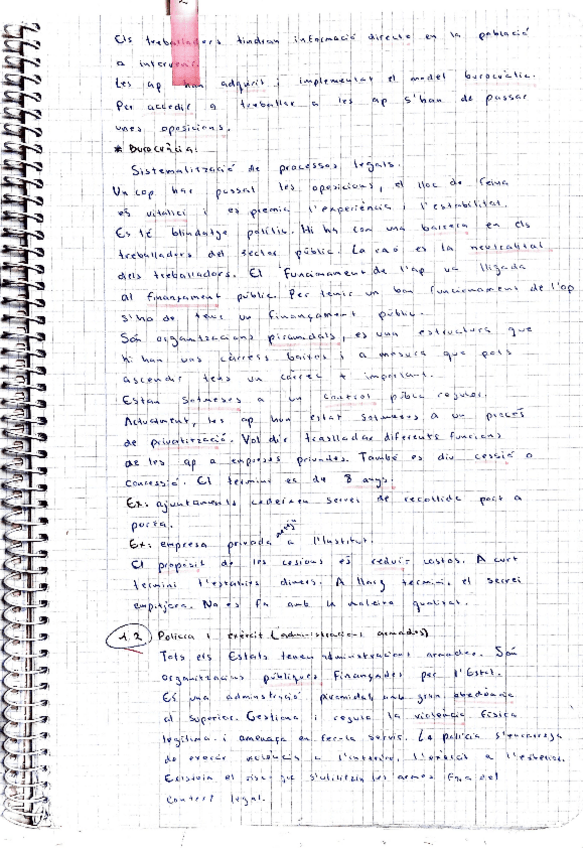 Els treballadors tindran informació directe en la població
a intervenir.
Les ap han adquirit i implementat el model burocràtic.
Per accedir a treballar a les ap s'han de passar
unes oposicions.
* Burocràcia:
Sistematització de processos legals.
Un cop has passat les oposicions, el lloc de feina
és vitalici i es premia l'experiència i l'estabilitat.
Es té blindatge polític. Hi ha com una barrera en els
treballadors del sector públic. La raó es la neutralitat
dels treballadors. El funcionament de l'ap va lligada
al finançament públic. Per tenir un bon funcionament de l'ap
s'ha de tenir un finançament públic.
Són organitzacions piramidals, es una estructura que
hi han uns càrrecs baixos i a mesura que pots
ascendir tens un càrrec + important.
Estan sotmeses a un control públic regular.
Actualment, les ap han estat sotmeses a un procés
de privatització. Vol dir traslladar diferents funcions
de les ap a empreses privades. També es diu cessió o
concessió. El termini es de 8 anys.
Ex: ajuntaments cedeixen servei de recollida port a
porta.
Ex: empresa privada a l'institut.
El propòsit de les cesions és reduir costos. A curt
termini t'estalvies diners. A llarg termini, el servei
empitjora. No es fa amb la mateixa qualitat.
1.2 Policia i exèrcit (administracions armades)
Tots els Estats tenen administracions armades. Són
organitzacions públiques finançades per l'Estat.
És una administració piramidal amb gran obediència
al superior. Gestiona i regula la violència física
legítima i amenaça en fer-la servir. La policia s'encarrega
de exercir violència a l'interior, l'exèrcit a l'exterior.
Existeix el risc que s'utilitzin les armes fora del
context legal.